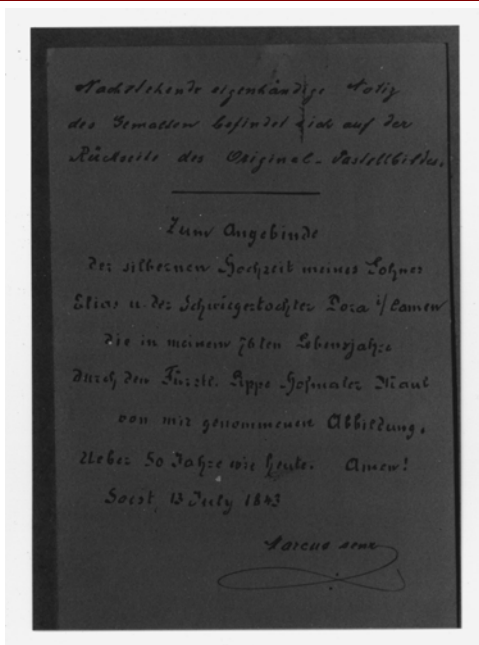 Nachstehende eigenhändige Notiz
des Gemalten befindet sich auf der
Rückseite des Original-Pastellbildes.
Zum Angebinde
der silbernen Hochzeit meines Sohnes
Elias u. der Schwiegertochter Dora i/ Camen
die in meinem 76ten Lebensjahre
durch den Fürstl. Lippe Hofmaler
von mir genommenen Abbildung.
Ueber 50 Jahre wie heute. Amen!
Soest, 13 July 1843
Marcus senr